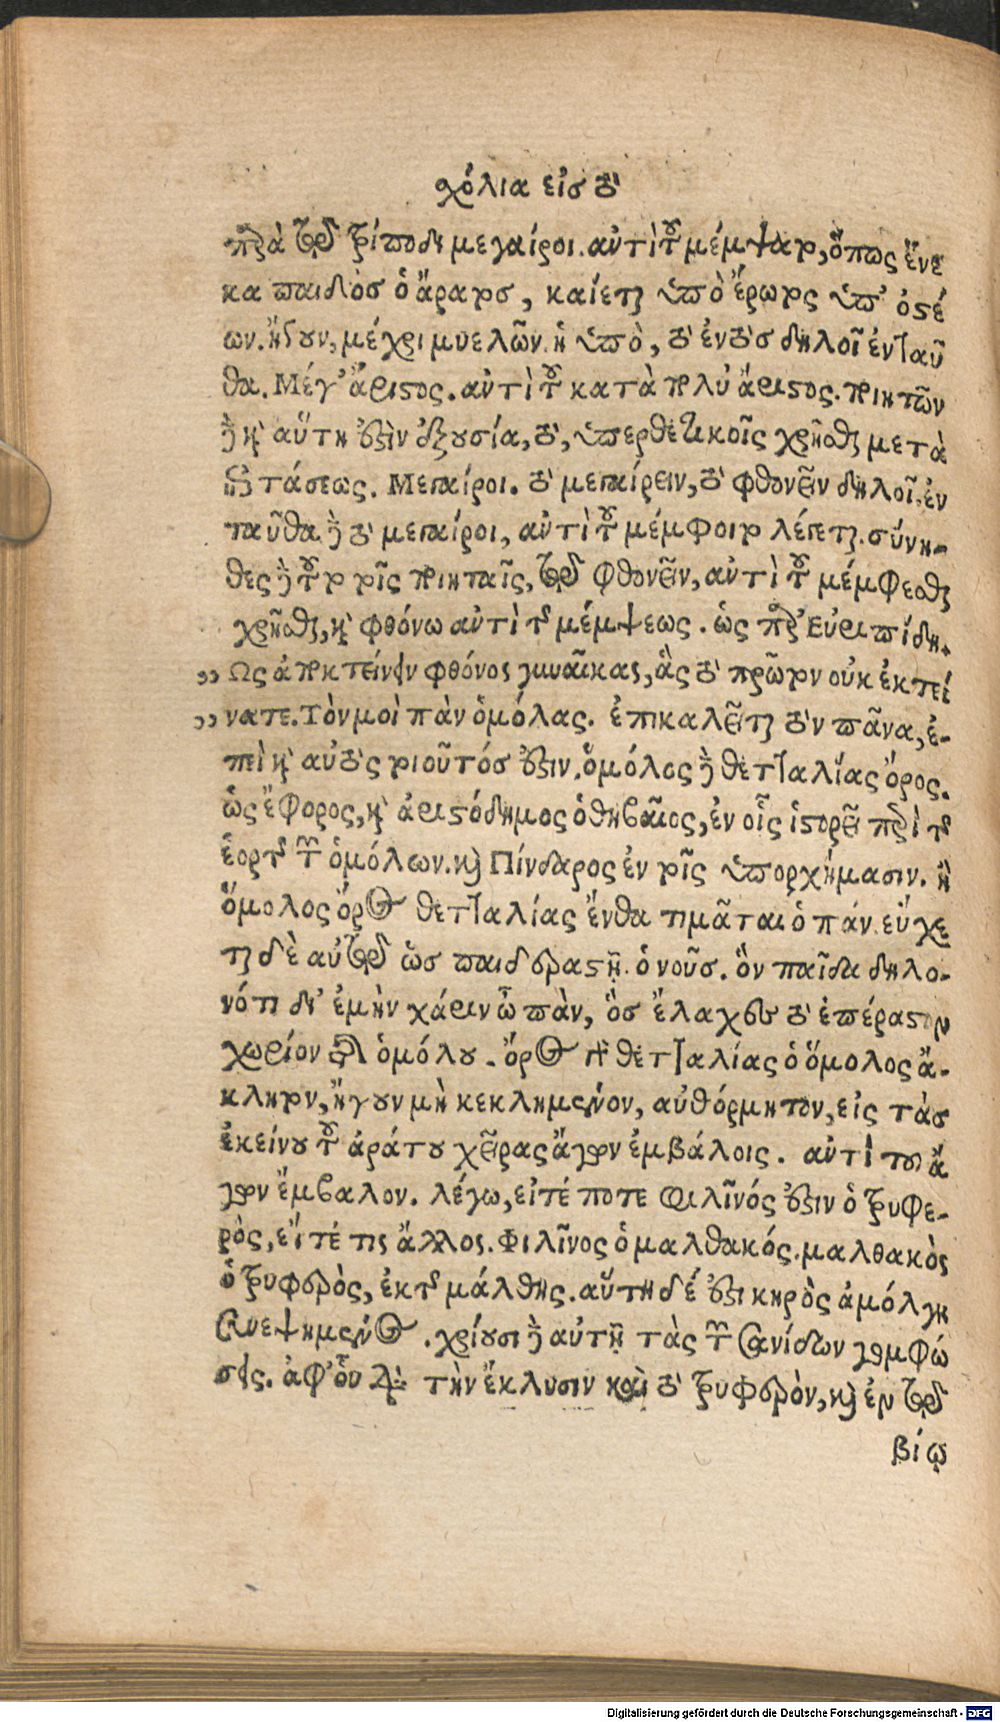 σχόλια εἰσ τὸ
παρὰ τῷ τρίποδι μεγαίροι. αὐτὶ τοῦ μέμψαιτο, ὅπως ἕνε
κα παιδὸσ ὁ ἄρατοσ, καίεται ὑπὸ ἔρωτος ὑπ' ὀστέ
ων. ἤγουν, μέχρι μυελῶν. ἡ ὑπὸ, τὸ ἐντὸσ δηλοῖ ἐνταῦ
θα. Μέγ' ἄριστος. αὐτὶ τοῦ κατὰ πολὺ ἄριστος. ποιητῶν
γὰρ καὶ αὕτη ἐστὶν ἐξουσία, τὸ, ὑπερθετικοῖς χρῆσθαι μετὰ
ἐπιτάσεως. Μεγαίροι. τὸ μεγαίρειν, τὸ φθονεῖν δηλοῖ. ἐν
ταῦθα γὰρ τὸ μεγαίροι, αὐτὶ τοῦ μέμφοιτο λέγεται. σύνη-
θες γὰρ τοῦτο τοῖς ποιηταῖς, τῷ φθονεῖν, αὐτὶ τοῦ μέμφεσθαι
χρῆσθαι, καὶ φθόνω αὐτὶ τῆς μέμψεως. ὡς παρ' Εὐριπίδη.
,, Ως ἀποκτείνειν φθόνος γυναῖκας, ἃς τὸ πρῶτον οὐκ ἐκτεί
,, νατε. Τὸν μοὶ πὰν ὁμόλας. ἐπικαλεῖται τὸν πᾶνα, ἐ-
πεὶ καὶ αὐτὸς τοιοῦτός ἐστιν. ὁμόλος γὰρ θετταλίας ὄρος.
ὡς ἔφορος, καὶ ἀριστόδημος ὁ θηβαῖος, ἐν οἷς ἱστορεῖ περὶ τῆς
ἑορτῆς τῶν ὁμόλων. καὶ Πίνδαρος ἐν τοῖς ὑπορχήμασιν. ἢ
ὅμολος ὄρος θετταλίας ἔνθα τιμᾶται ὁ πάν. εὔχε
ται δὲ αὐτῷ ὡσ παιδεραστῇ. ὁ νοῦσ. ὃν παῖδα δηλο-
νότι δι' ἐμὴν χάριν ὦ πὰν, ὃσ ἔλαχες τὸ ἐπέραστον
χωρίον τοῦ ὁμόλου. ὄρος γὰρ θετταλίας ὁ ὅμολος ἄ-
κλητον, ἤγουν μὴ κεκλημένον, αὐθόρμητον, εἰς τὰσ
ἐκείνου τοῦ ἀράτου χεῖρας ἄγων ἐμβάλοις. αὐτὶ τοῦ ἄ
γων ἔμβαλον. λέγω, εἴτέ ποτε φιλῖνός ἐστιν ὁ τρυφε-
ρὸς, εἴτέ τις ἄλλος. Φιλῖνος ὁ μαλθακός. μαλθακὸς
ὁ τρυφερὸς, ἐκ τῆς μάλθης. αὕτη δέ ἐστι κηρὸς ἀμόλγῃ
συνεψημένος. χρίουσι γὰρ αὐτῇ τὰς τῶν σανίδων γομφώ
σεις. ἀφ' οὗ διὰ τὴν ἔκλυσιν καὶ τὸ τρυφερὸν, καὶ ἐν τῷ
βίῳ
Digitalisierung gefördert durch die Deutsche Forschungsgemeinschaft - DFG